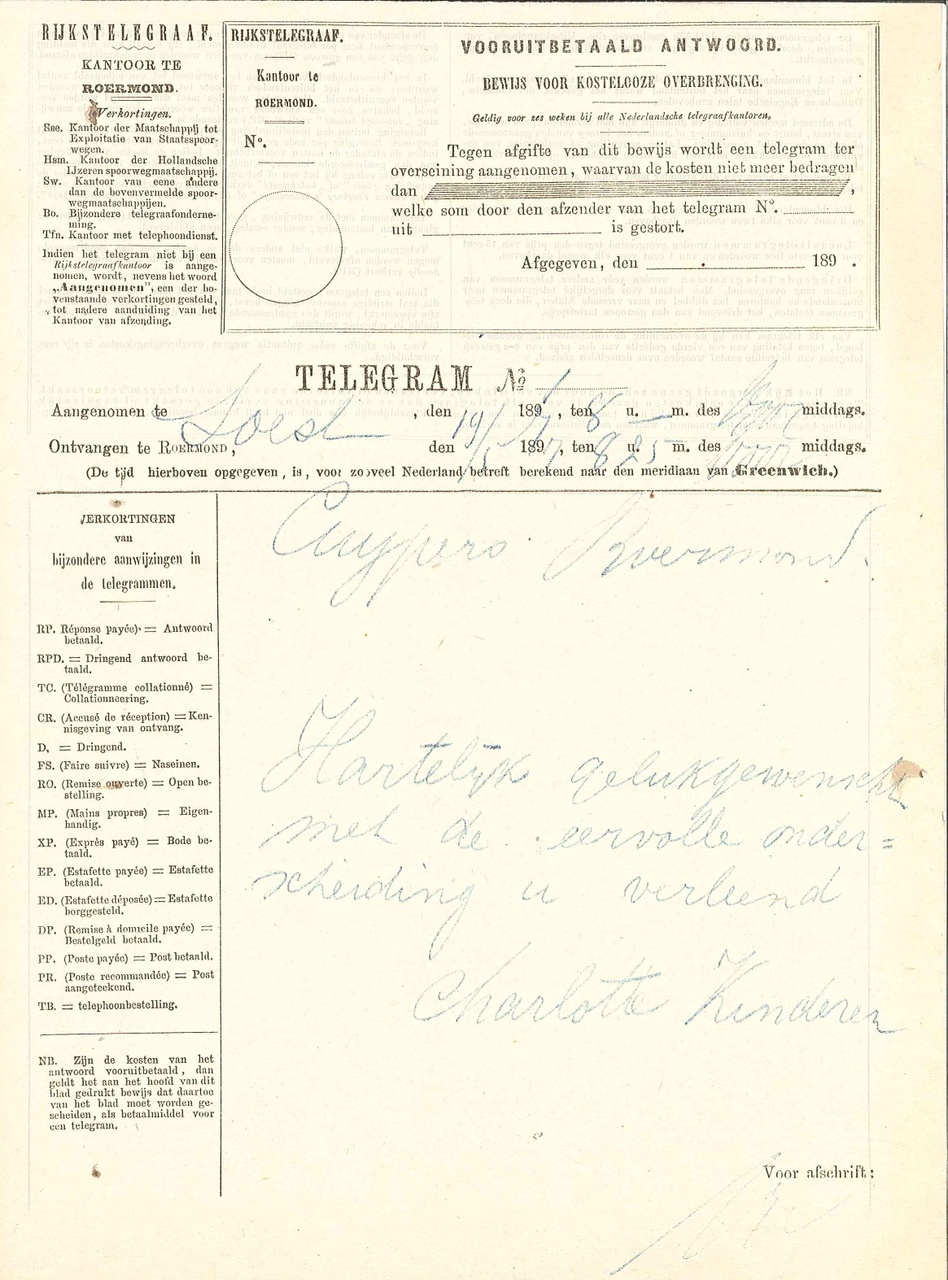 RIJKSTELEGRAAF.
KANTOOR TE
ROERMOND.
Verkortingen.
Sse. Kantoor der Maatschappij tot
Exploitatie van Staatsspoor-
wegen.
Hsm. Kantoor der Hollandsche
IJzeren spoorwegmaatschappij.
Sw. Kantoor van eene andere
dan de bovenvermelde spoor-
wegmaatschappijen.
Bo. Bijzondere telegraafonderne-
ming.
Tfn. Kantoor met telephoondienst.
Indien het telegram niet bij een
Rijkstelegraafkantoor is aange-
nomen, wordt, nevens het woord
„Aangenomen”, een der bo-
venstaande verkortingen gesteld,
tot nadere aanduiding van het
Kantoor van afzending.
RIJKSTELEGRAAF.
Kantoor te
ROERMOND.
No.
VOORUITBETAALD ANTWOORD.
BEWIJS VOOR KOSTELOOZE OVERBRENGING.
Geldig voor zes weken bij alle Nederlandsche telegraafkantoren.
Tegen afgifte van dit bewijs wordt een telegram ter
overseining aangenomen, waarvan de kosten niet meer bedragen
dan ,
welke som door den afzender van het telegram No.
uit is gestort.
Afgegeven, den 189 .
TELEGRAM No 1
Aangenomen te Soest , den 19/5 1897, ten 8 u. — m. des voor middags.
Ontvangen te ROERMOND, den 19/5 1897, ten 8 u. 25 m. des voor middags.
(De tijd hierboven opgegeven, is, voor zooveel Nederland betreft berekend naar den meridiaan van Greenwich.)
VERKORTINGEN
van
bijzondere aanwijzingen in
de telegrammen.
RP. Réponse payée) = Antwoord
betaald.
RPD. = Dringend antwoord be-
taald.
TC. (Télégramme collationné) =
Collationneering.
CR. (Accusé de réception) = Ken-
nisgeving van ontvang.
D, = Dringend.
FS. (Faire suivre) = Naseinen.
RO. (Remise ouverte) = Open be-
stelling.
MP. (Mains propres) = Eigen-
handig.
XP. (Exprès payé) = Bode be-
taald.
EP. (Estafette payée) = Estafette
betaald.
ED. (Estafette déposée) = Estafette
borggesteld.
DP. (Remise à domicile payée) =
Bestelgeld betaald.
PP. (Poste payée) = Post betaald.
PR. (Poste recommandée) = Post
aangeteekend.
TB. = telephoonbestelling.
NB. Zijn de kosten van het
antwoord vooruitbetaald, dan
geldt het aan het hoofd van dit
blad gedrukt bewijs dat daartoe
van het blad moet worden ge-
scheiden, als betaalmiddel voor
een telegram.
Cuypers Roermond.
Hartelijk gelukgewenscht
met de eervolle onder=
scheiding u verleend
Charlotte Kinderen
Voor afschrift: